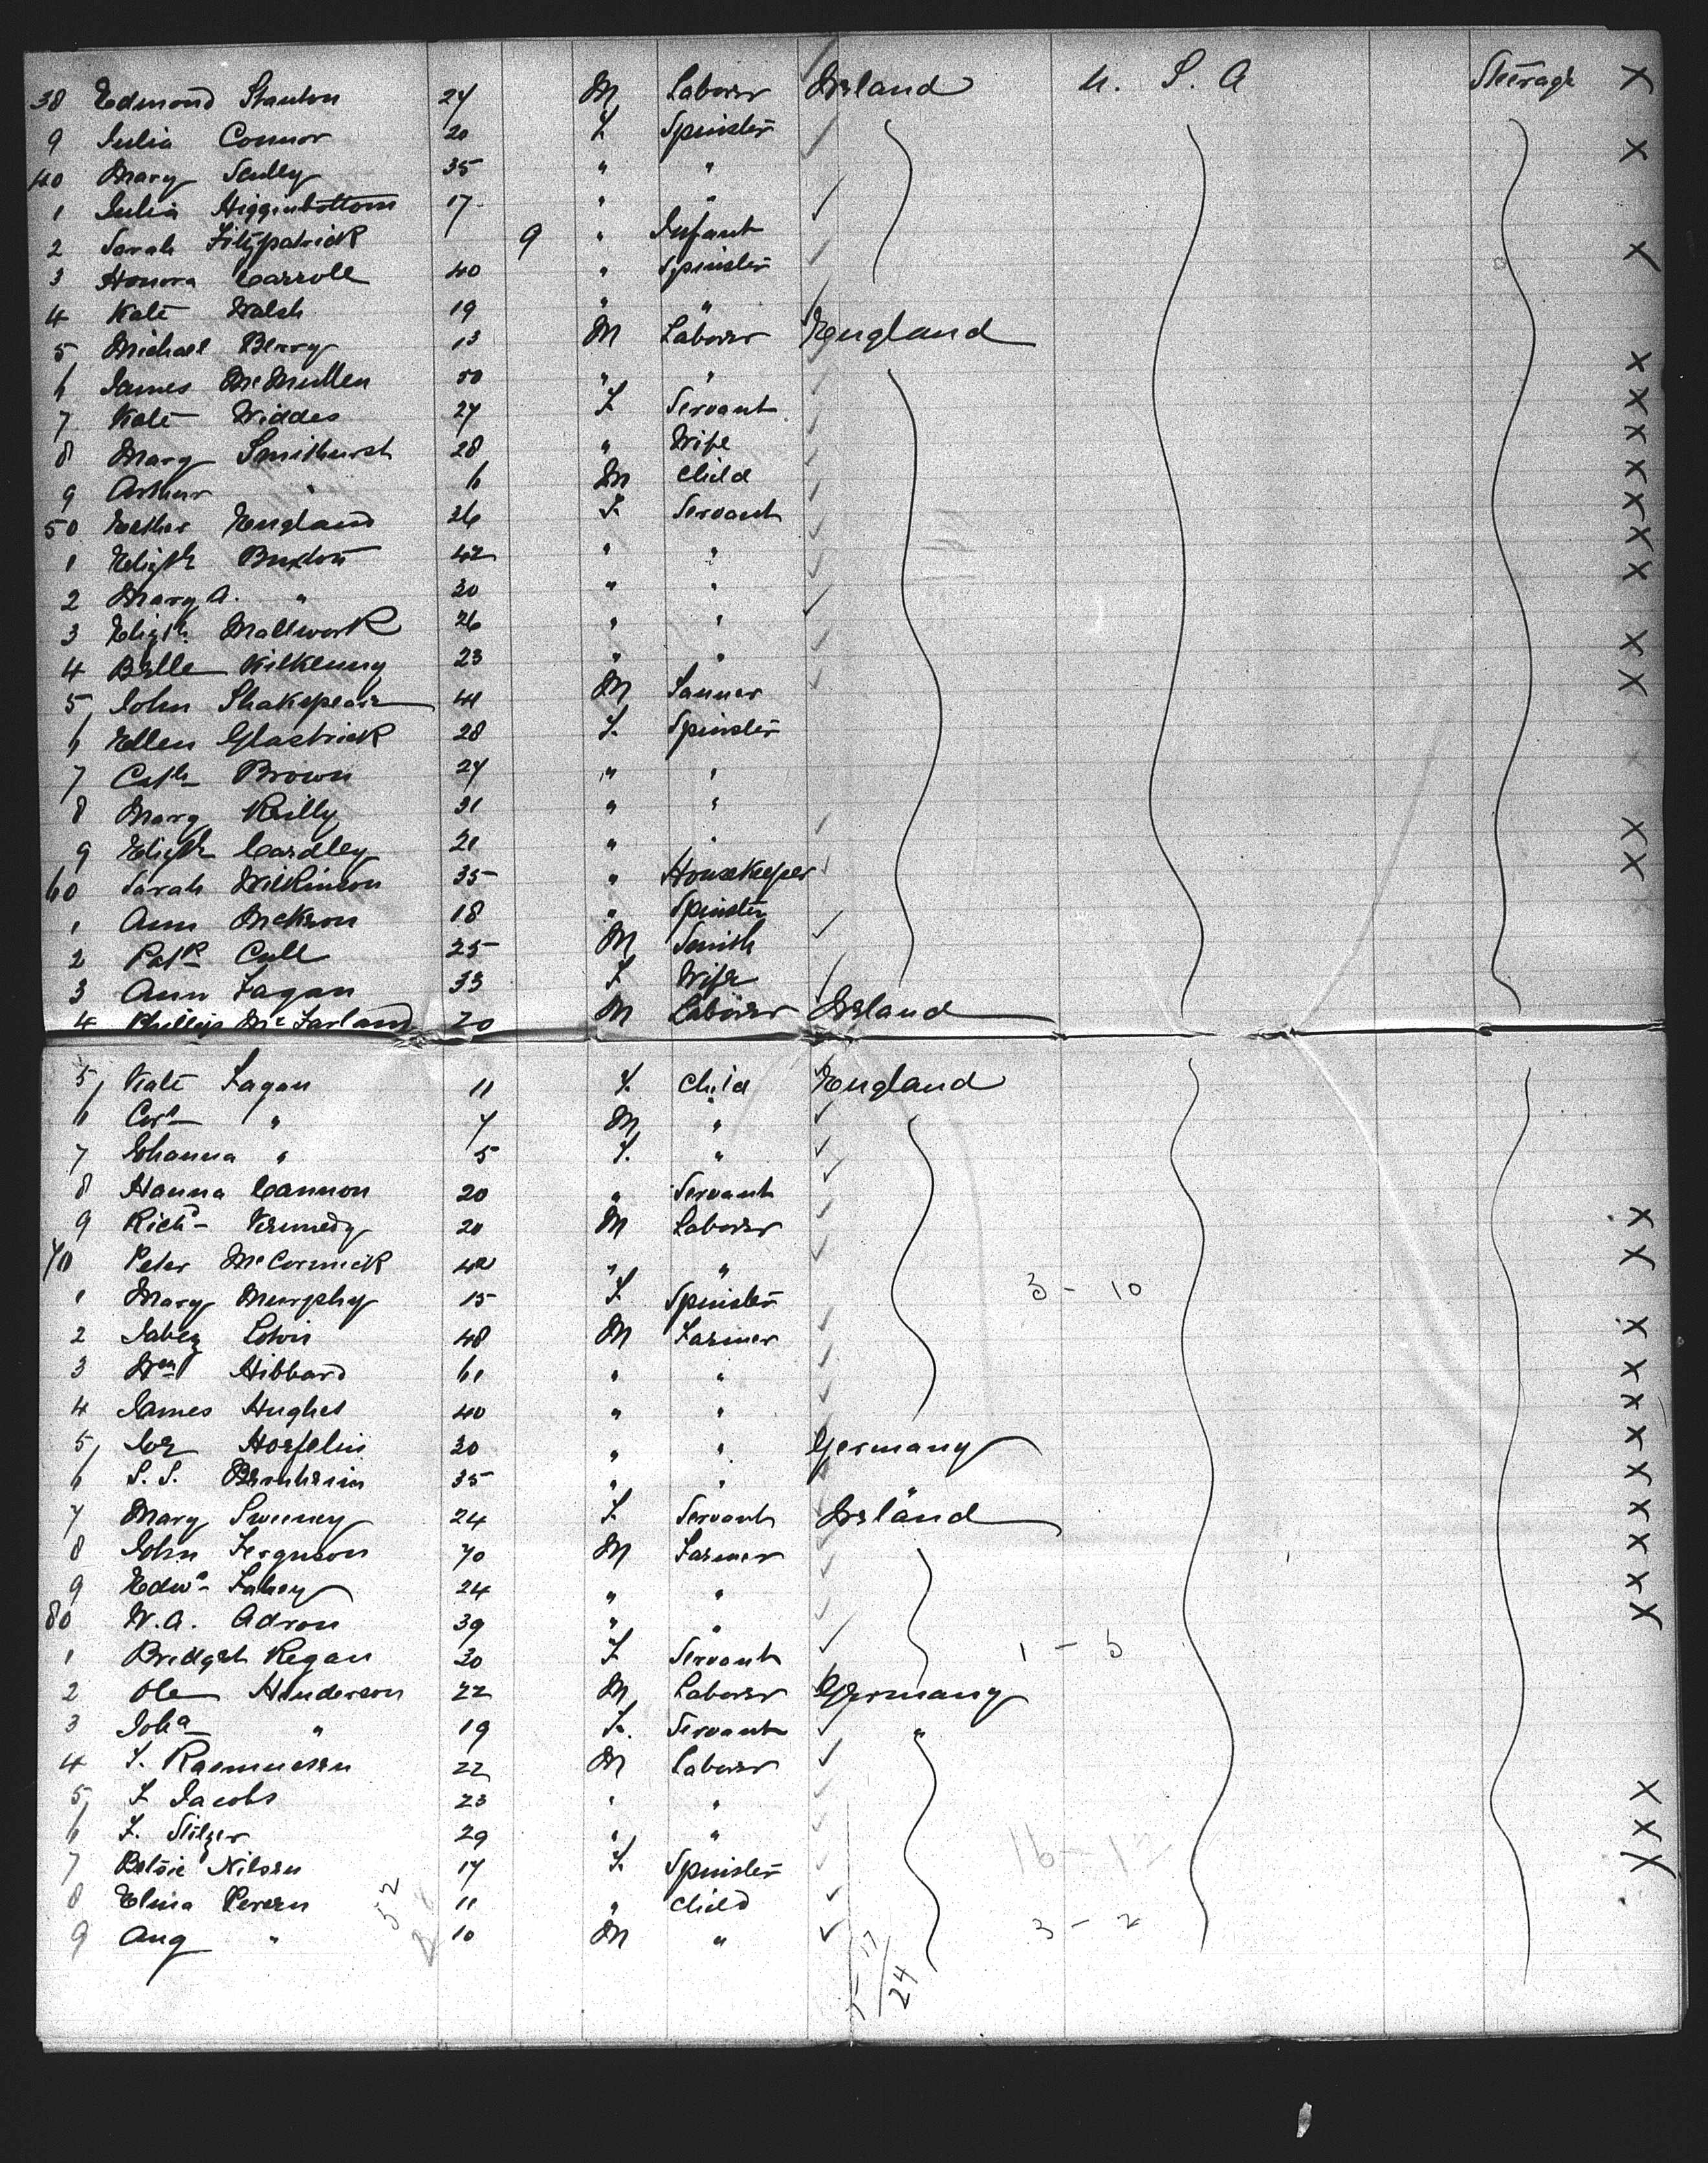 38 Edmond Stanton 24 M Laborer Ireland U. S. A Steerage X
9 Julia Connor 20 F Spinster X
40 Mary Scully 35 " "
1 Julia Higginbottom 17 " "
2 Sarah Fitzpatrick 9 " Infant X
3 Honora Carroll 40 " Spinster
4 Kate Walsh 19 " "
5 Michael Berry 13 M Laborer England
6 James McMullen 50 " " X
7 Kate Widdes 24 F Servant X
8 Mary Smithurst 28 " Wife X
9 Arthur " 6 M Child X
50 Esther England 26 F. Servant X
1 Elizth Buxton 42 " " X
2 Mary A. " 20 " " X
3 Elizth Mallwork 26 " "
4 Belle Kilkenny 23 " " X
5 John Shakspeare 41 M Tanner X
6 Ellen 28 F. Spinster
7 Cath Brown 24 " "
8 Mary Reilly 31 " "
9 Elizth Cardley 21 " " X
60 Sarah Wilkinson 35 " Housekeeper X
1 Ann 18 " Spinster
2 Patk Cull 25 M Smith
3 Ann Fagan 33 F Wife
4 Phillip McFarland 20 M Laborer Ireland
5 Kate Fagan 11 F. Child England
6 " 7 M "
7 Johanna " 5 F. "
8 Hanna Cannon 20 " Servant
9 Richd Kennedy 20 M Laborer X
70 Peter McCormick 42 " " X
1 Mary Murphy 15 F Spinster 3 - 10
2 Jabez 48 M Farmer X
3 Wm Hibbard 61 " " X
4 James Hughes 40 " " X
5 Joe 30 " " Germany X
6 S. S. Bernheim 35 " " " X
7 Mary Sweeney 24 F Servant Ireland X
8 John Ferguson 70 M Farmer X
9 Edwd Fahey 24 " " X
80 W. A. Adron 39 " " X
1 Bridget Regan 30 F Servant 1 - 5
2 Ole Henderson 22 M Laborer Germany
3 Joha " 19 F. Servant "
4 Rasmussen 22 M Laborer
5 F Jacobs 23 " " X
6 F. Stilzer 29 " " X
7 Betsie Nilsen 17 F. Spinster X
8 Elina Persen 11 " Child
9 Aug " 10 M " 3 - 2
52
24